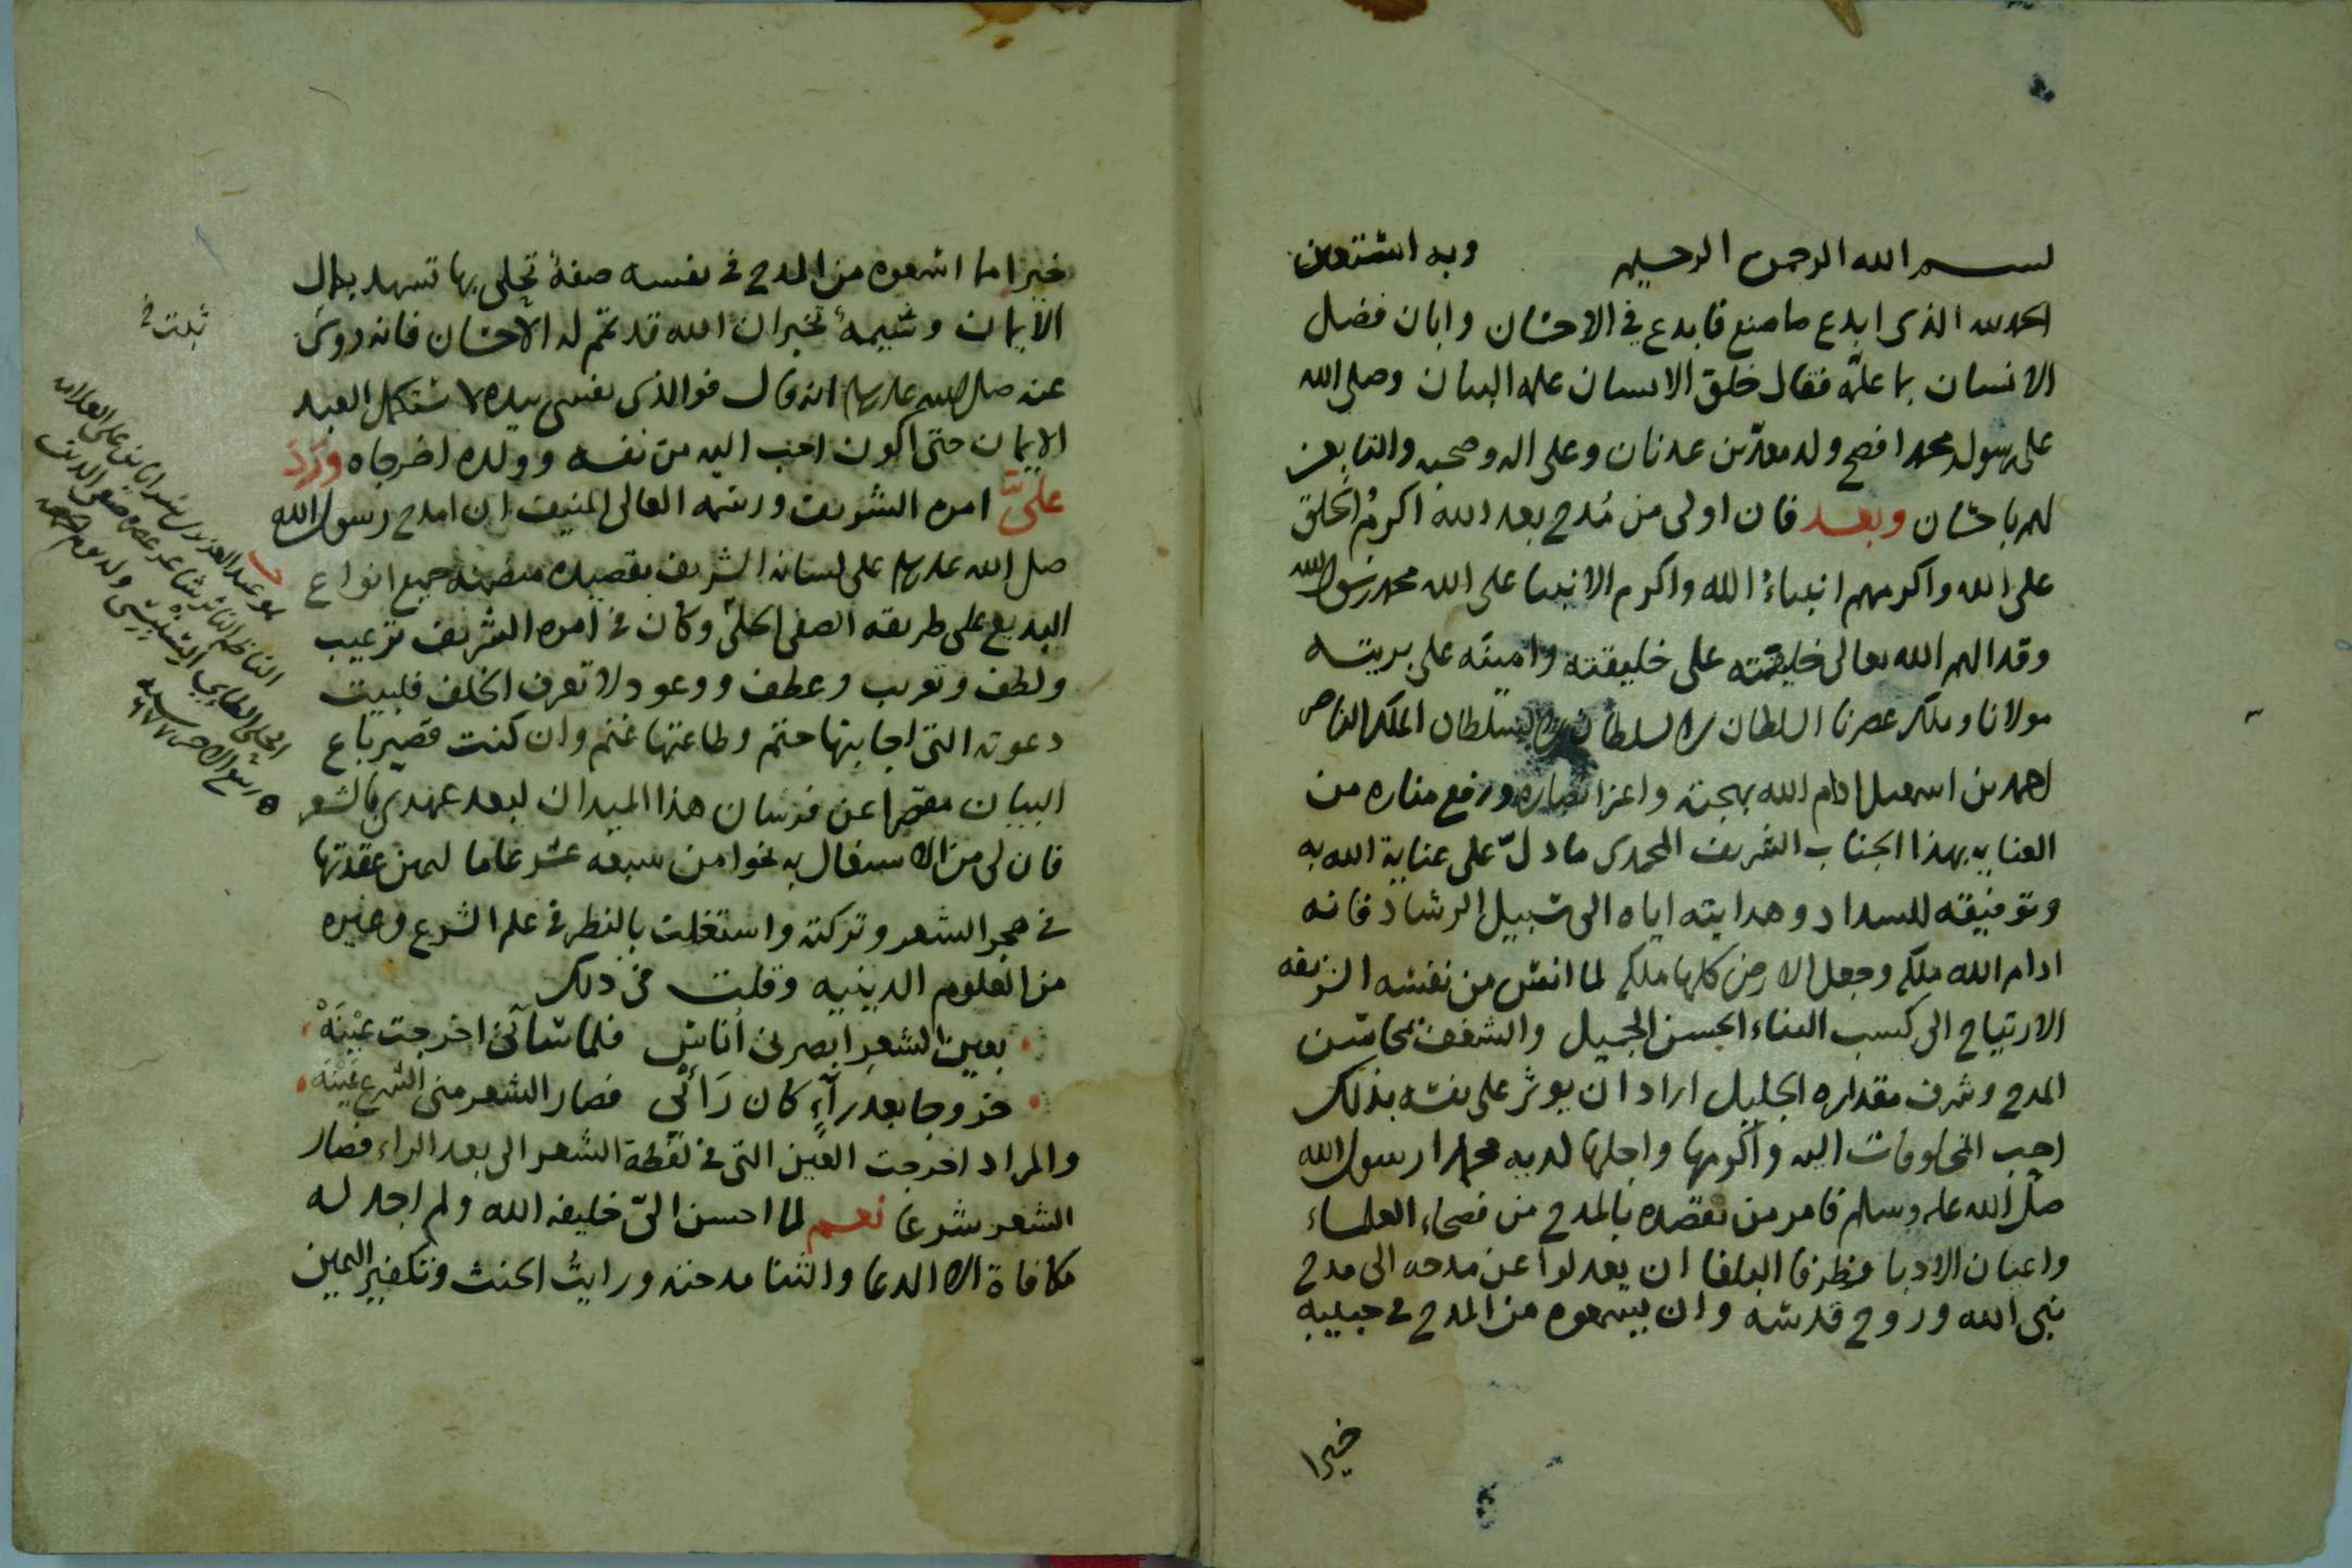 بسم الله الرحمن الرحيم وبه استعين
الحمد لله الذى ابدع ما صنع فابدع في الاحسان وابان فضل
الانسان بما علمه فقال خلق الانسان علمه البيان وصلى الله
على رسوله محمد افصح ولد معد بن عدنان وعلى اله وصحبه والتابعين
لهم باحسان وبعد فان اولى من مُدح بعد الله اكرمُ الخلق
على الله واكرمهم انبياءُ الله واكرم الانبيا على الله محمد رسول الله
وقد الهم الله تعالى خليفته على خليقته وامينه على بريته
مولانا وملك عصرنا السلطان بن السلطان بن السلطان الملك الناصر
احمد بن اسمعيل ادام الله بهجته واعز انصاره ورفع مناره من
العنايه بهذا الجناب الشريف المحمدى ما دلّ على عناية الله به
وتوفيقه للسداد وهدايته اياه الى سبيل الرشاد فانه
ادام الله ملكه وجعل الارض كلها ملكه لما انس من نفسه الشريفه
الارتياح الى كسب الثناء الحسن الجميل والشغف بمحاسن
المدح وشرف مقداره الجليل اراد ان يوثر على نفسه بذلك
احب المخلوقات اليه واكرمها واجلها لديه محمدا رسول الله
صلى الله عليه وسلم فامر من يقصده بالمدح من فصحاء العلماء
واعيان الادبا وظرفا البلغا ان يعدلوا عن مدحه الى مدح
نبي الله وروح قدسه وان يسمعوه من المدح في حبيبه
خيرا
خيرا مما اسمعوه من المدح في نفسه صفةٌ تجلى بها تشهد بكمال
الايمان وشيمةٌ تخبر ان الله قد تمم له الاحسان فانه روى
عنه صلى الله عليه وسلم انه قال فوالذى نفسى بيده لا يستكمل العبد
الايمان حتى اكون احب اليه من نفسه وولده اخرجاه وورد
علىَّ امره الشريف ورسمه العالى المنيف ان امدح رسول الله
صلى الله عليه وسلم على لسانه الشريف بقصيده متضمنه جميع انواع
البديع على طريقه الصفى الحلى وكان في امره الشريف ترغيب
ولطف وتقريب وعطف ووعود لا تعرف الخلف فلبيت
دعوته التى اجابتها حتم وطاعتها غنم وان كنت قصير باع
البيان مقصرا عن فرسان هذا الميدان لبعد عهدى بالشعر
فان لى من الاشتغال به نحوا من سبعه عشر عاما ليمين عقدتها
في هجر الشعر وتركته واشتغلت بالنظر في علم الشرع وغيره
من العلوم الدينيه وقلت في ذلك
بعين الشعر ابصرنى اُناس فلما ساءنى اخرجت عينَهْ
خروجا بعد رآءٍ كان رَائى فصار الشعر منى الشرع عينَهْ
والمراد اخرجت العين التى في لفظة الشعر الى بعد الراء فصار
الشعر شرعا نعم لما احسن الىّ خليفه الله ولم اجد له
مكافاة الا الدعا والثنا مدحته ورايتُ الحنث وتكفير اليمين
هو عبد العزيز بن سرايا بن على
الناظم الناثر شاعر عصره صفى الدين
الحلى الطائي السنبسى ولد يوم الجمعه
ربيع الاخر سنه ٦٧٧